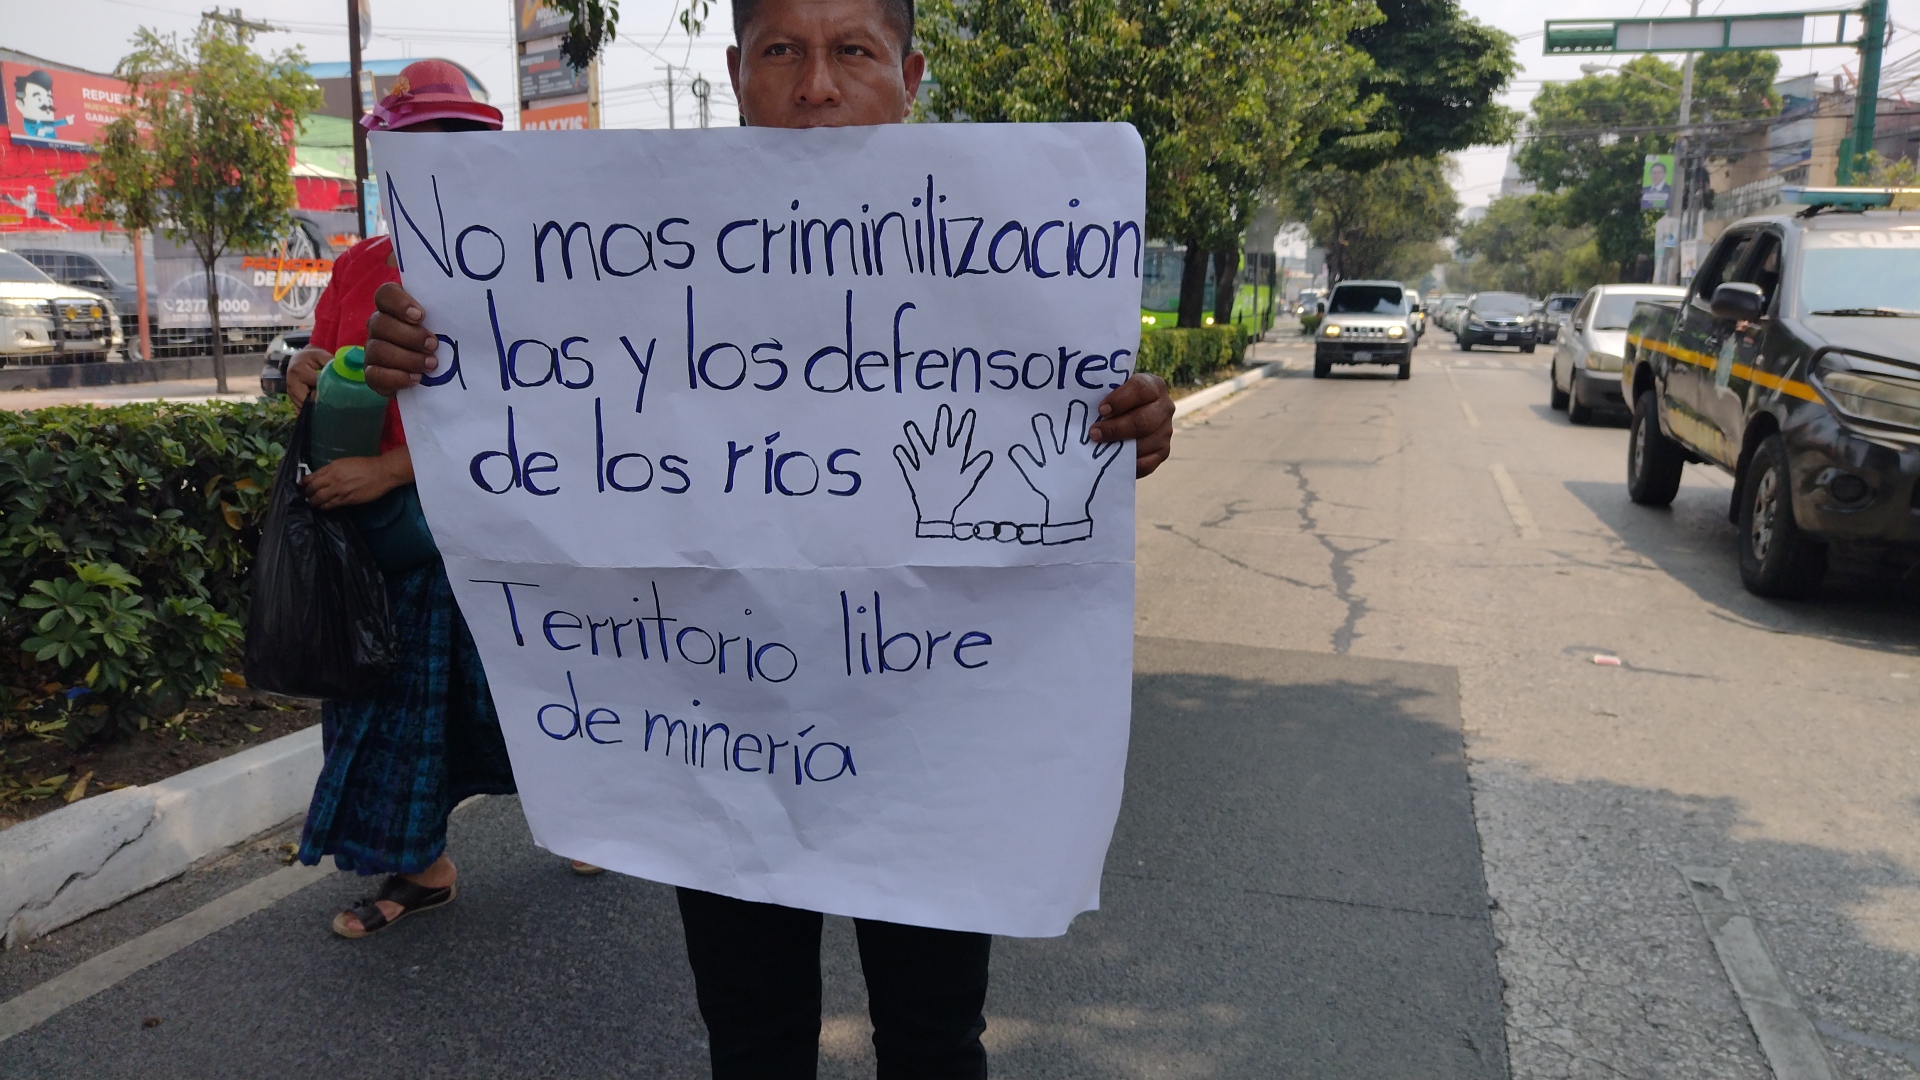 No mas criminilizacion
a las y los defensores
de los ríos
Territorio libre
de minería
REPUE
GARAN
MAXXIS
DE INVIER